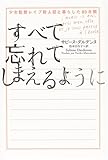 少女監禁レイプ殺人犯と暮らした80日間
すべて
忘れて
しまえるように
サビーヌ・ダルデンヌ
Sabine Dardenne